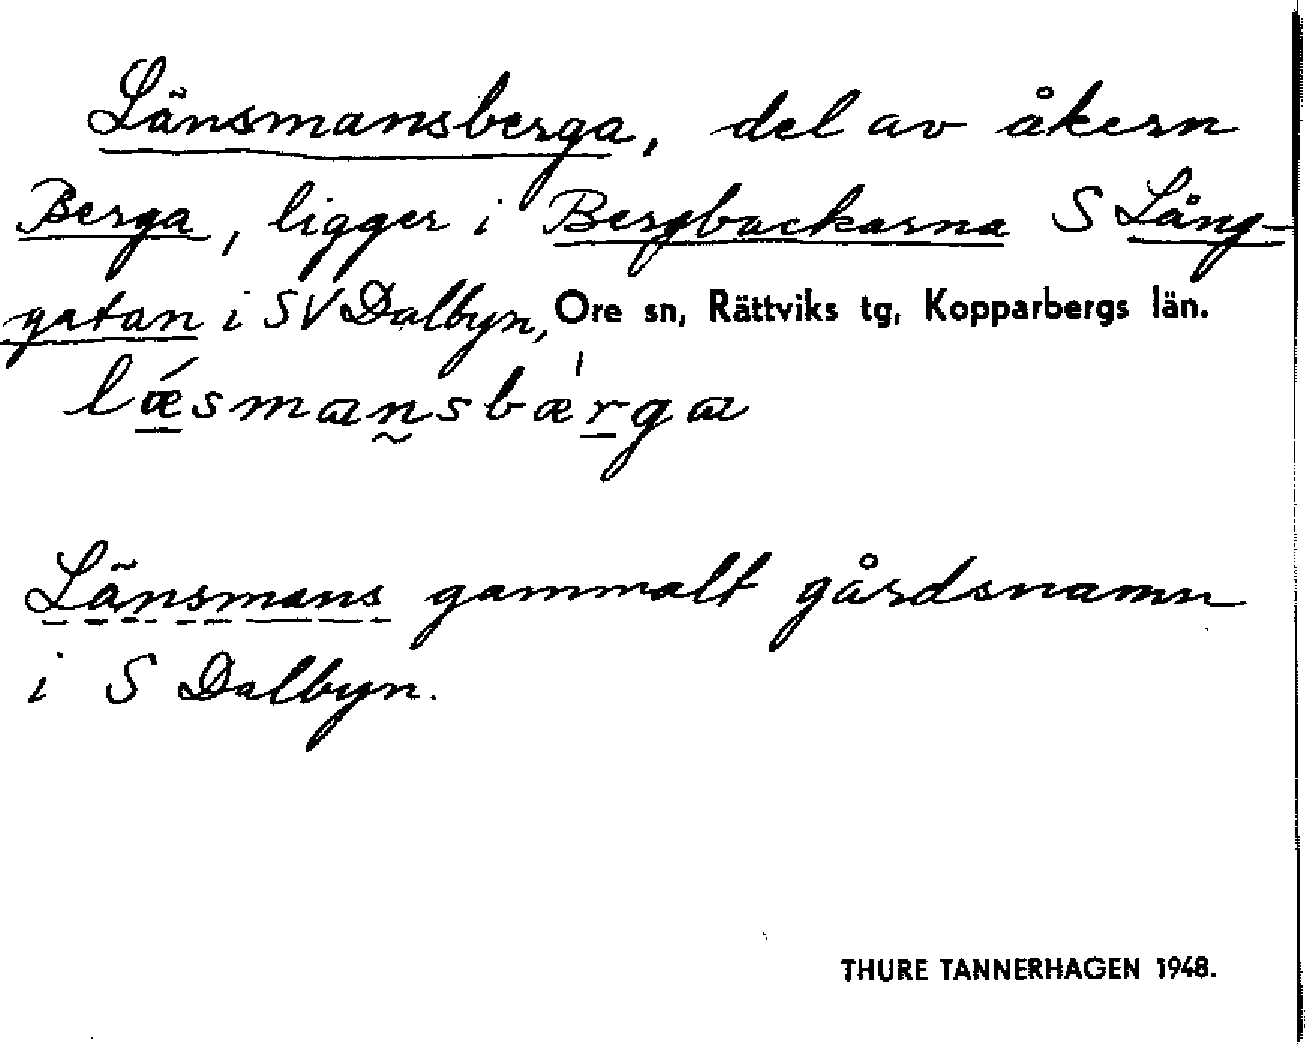 Länsmansberga, del av åkern
Berga, ligger i Bergbackarna S Lång-
gatan i SV Dalbyn, Ore sn, Rättviks tg, Kopparbergs län.
lǽsmansbærga
Länsmans gammalt gårdsnamn
i S Dalbyn.
THURE TANNERHAGEN 1948.